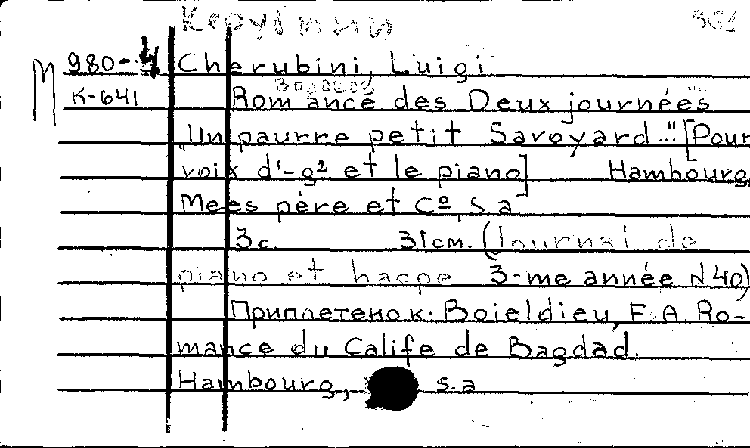 Керубини
980-4 Cherubini, Luigi
М К-641 Romance des Deux journées
"Un paurre petit Savoyard..." [Pour
voix d'-g² et le piano] Hambourg
Mees père et Cº, s.a
3c. 31cm. (Journal de
piano et harpe 3-me année N 40)
Приплетено к: Boieldieu, F. A. Ro-
mance du Calife de Bagdad.
Hambourg, s.a